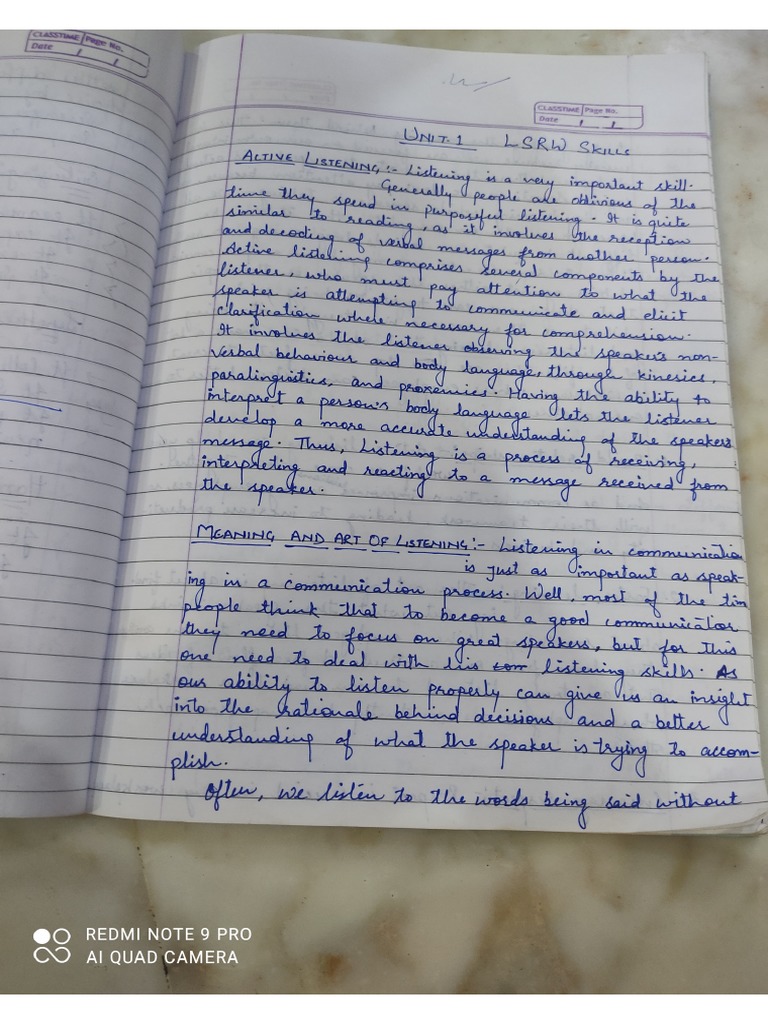 CLASSTIME Page No.
Date / /
CLASSTIME Page No.
Date / /
UNIT-1 LSRW SKILLS
ACTIVE LISTENING:- Listening is a very important skill.
Generally people are oblivious of the
time they spend in purposeful listening. It is quite
similar to reading, as it involves the reception
and decoding of verbal messages from another person.
Active listening comprises several components by the
listener, who must pay attention to what the
speaker is attempting to communicate and elicit
clarification where necessary for comprehension.
It involves the listener observing the speaker's non-
verbal behaviour and body language, through kinesics,
paralinguistics, and proxemics. Having the ability to
interpret a person's body language lets the listener
develop a more accurate understanding of the speakers
message. Thus, Listening is a process of receiving,
interpreting and reacting to a message received from
the speaker.
MEANING AND ART OF LISTENING:- Listening in communication
is just as important as speak-
ing in a communication process. Well, most of the tim
people think that to become a good communicator
they need to focus on great speakers, but for this
one need to deal with his listening skills. As
our ability to listen properly can give us an insight
into the rationale behind decisions and a better
understanding of what the speaker is trying to accom-
plish.
Often, we listen to the words being said without
REDMI NOTE 9 PRO
AI QUAD CAMERA